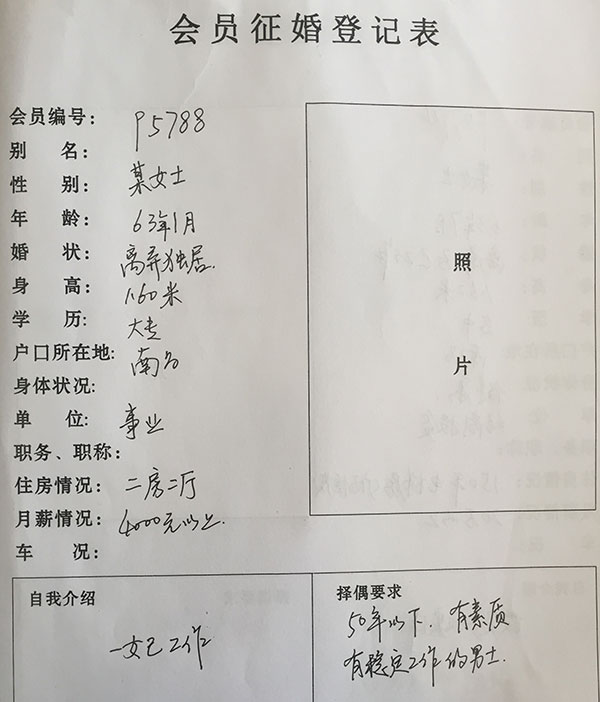 会员征婚登记表
会员编号: P5788
别 名:
性 别: 某女士
年 龄: 63年1月
婚 状: 离异独居.
身 高: 1.60米
学 历: 大专
户口所在地: 南昌
身体状况:
单 位: 事业
职务、职称:
住房情况: 二房二厅
月薪情况: 4000元以上.
车 况:
照
片
自我介绍
一女已工作
择偶要求
50年以下. 有素质
有稳定工作的男士.